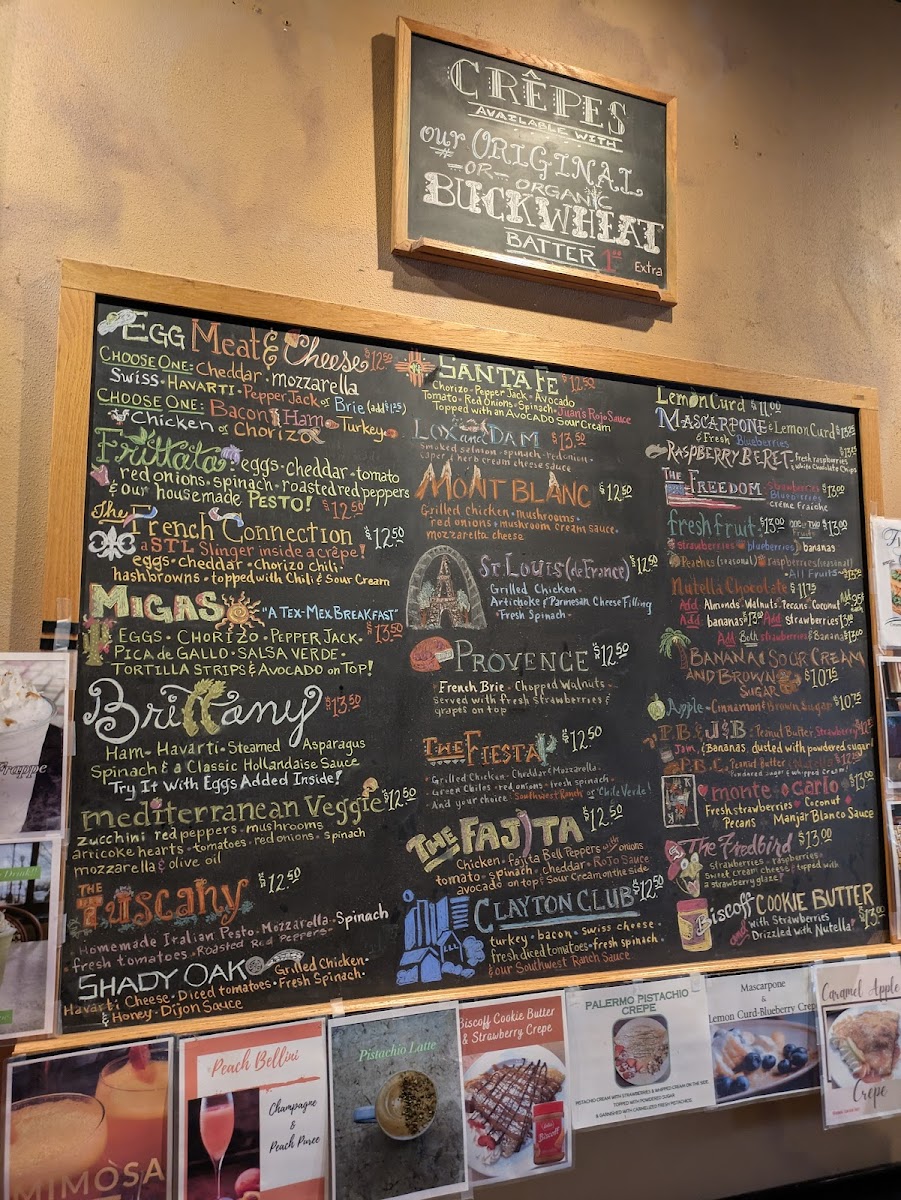 CRÊPES
AVAILABLE WITH
our ORIGINAL
-OR- ORGANIC
BUCKWHEAT
BATTER 1⁰⁰ Extra
EGG Meat & Cheese $12.50
CHOOSE ONE: Cheddar · mozzarella
Swiss · HAVARTI · Pepper Jack or Brie (add $1.25)
CHOOSE ONE: Bacon Ham Turkey
Chicken or Chorizo
Frittata · eggs · cheddar · tomato
red onions · spinach · roasted red peppers
& our housemade PESTO! $12.50
The French Connection $12.50
a STL Slinger inside a crêpe!
eggs · cheddar · Chorizo chili
hashbrowns · topped with Chili & Sour Cream
MIGAS "A TEX-MEX BREAKFAST" $13.50
EGGS · CHORIZO · PEPPER JACK ·
PICA de GALLO · SALSA VERDE ·
TORTILLA STRIPS & AVOCADO on TOP!
Brittany $13.50
Ham · Havarti · Steamed Asparagus
Spinach & a Classic Hollandaise Sauce
Try It With Eggs Added Inside!
mediterranean Veggie $12.50
zucchini red peppers · mushrooms
articoke hearts · tomatoes · red onions · spinach
mozzarella & olive oil
THE Tuscany $12.50
Homemade Italian Pesto · Mozzarella · Spinach
· fresh tomatoes · Roasted Red Peppers ·
SHADY OAK Grilled Chicken ·
Havarti Cheese · Diced tomatoes · Fresh Spinach ·
& Honey · Dijon Sauce
SANTA FE $12.50
Chorizo · Pepper Jack · Avocado
Tomato · Red Onions · Spinach · Juan's Rojo Sauce
Topped with an AVOCADO Sour Cream
LOX and DAM $13.50
Smoked salmon · spinach · red onion ·
caper & herb cream cheese sauce
MONT BLANC $12.50
Grilled chicken · mushrooms ·
red onions · mushroom cream sauce ·
mozzarella cheese
ST. LOUIS (de FRANCE) $12.50
Grilled Chicken ·
Artichoke & Parmesan Cheese Filling
· Fresh Spinach ·
PROVENCE $12.50
· French Brie · Chopped Walnuts ·
Served with fresh strawberries &
grapes on top
THE FIESTA $12.50
· Grilled Chicken · Cheddar & Mozzarella ·
Green Chiles · red onions · fresh spinach ·
And your choice: Southwest Ranch or "Chile Verde"!
THE FAJITA $12.50
Chicken · fajita Bell Peppers with onions
tomato · spinach · cheddar · Rojo Sauce
avocado on top & Sour Cream on the side
CLAYTON CLUB $12.50
turkey · bacon · swiss cheese ·
fresh diced tomatoes · fresh spinach ·
& our Southwest Ranch Sauce
Lemon Curd $11.00
MASCARPONE & Lemon Curd
& Fresh Blueberries
RASPBERRY BERET fresh raspberries
& White Chocolate Chips
THE FREEDOM Strawberries $13.00
Blueberries
CRÈME FRAICHE
fresh fruit $13.00 ONE or TWO Fruit $13.00
strawberries blueberries bananas
Peaches (seasonal) raspberries (seasonal)
All Fruits
Nutella Chocolate $11.75
Add Almonds · Walnuts · Pecans · Coconut
Add bananas $13.00 Add Strawberries
Add Both strawberries & Banana $13.50
BANANA & SOUR CREAM
AND BROWN SUGAR $10.75
Apple · Cinnamon & Brown Sugar $10.75
P.B. & J & B · Peanut Butter Strawberry
Jam, & Bananas dusted with powdered sugar
P.B.C. Peanut Butter & Nutella
Powdered sugar & whipped cream!
monte carlo $13.00
Fresh strawberries Coconut
Pecans · Manjar Blanco Sauce
The Fredbird $13.00
strawberries · raspberries ·
Sweet cream cheese & topped with
a strawberry glaze!
Biscoff COOKIE BUTTER
and with Strawberries
Drizzled with Nutella! $13.00
Frappe
MIMÒSA
Peach Bellini
Champagne
&
Peach Puree
Pistachio Latte
Biscoff Cookie Butter
& Strawberry Crepe
Biscoff
PALERMO PISTACHIO
CREPE
PISTACHIO CREAM WITH STRAWBERRIES & WHIPPED CREAM ON THE SIDE
TOPPED WITH POWDERED SUGAR
& GARNISHED WITH CARAMELIZED FRESH PISTACHIOS.
Mascarpone
&
Lemon Curd-Blueberry Crepe
Caramel Apple
Crepe